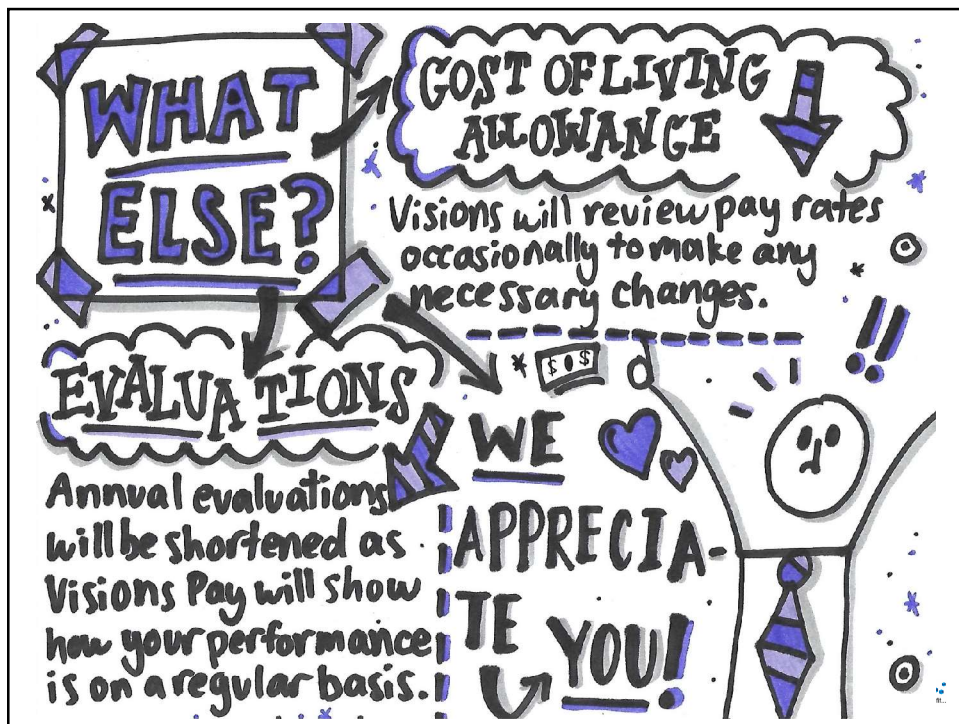 WHAT
ELSE?
COST OF LIVING
ALLOWANCE
Visions will review pay rates
occasionally to make any
necessary changes.
EVALUATIONS
Annual evaluations
will be shortened as
Visions Pay will show
how your performance
is on a regular basis.
$ $
WE
APPRECIA-
TE
YOU!
!!